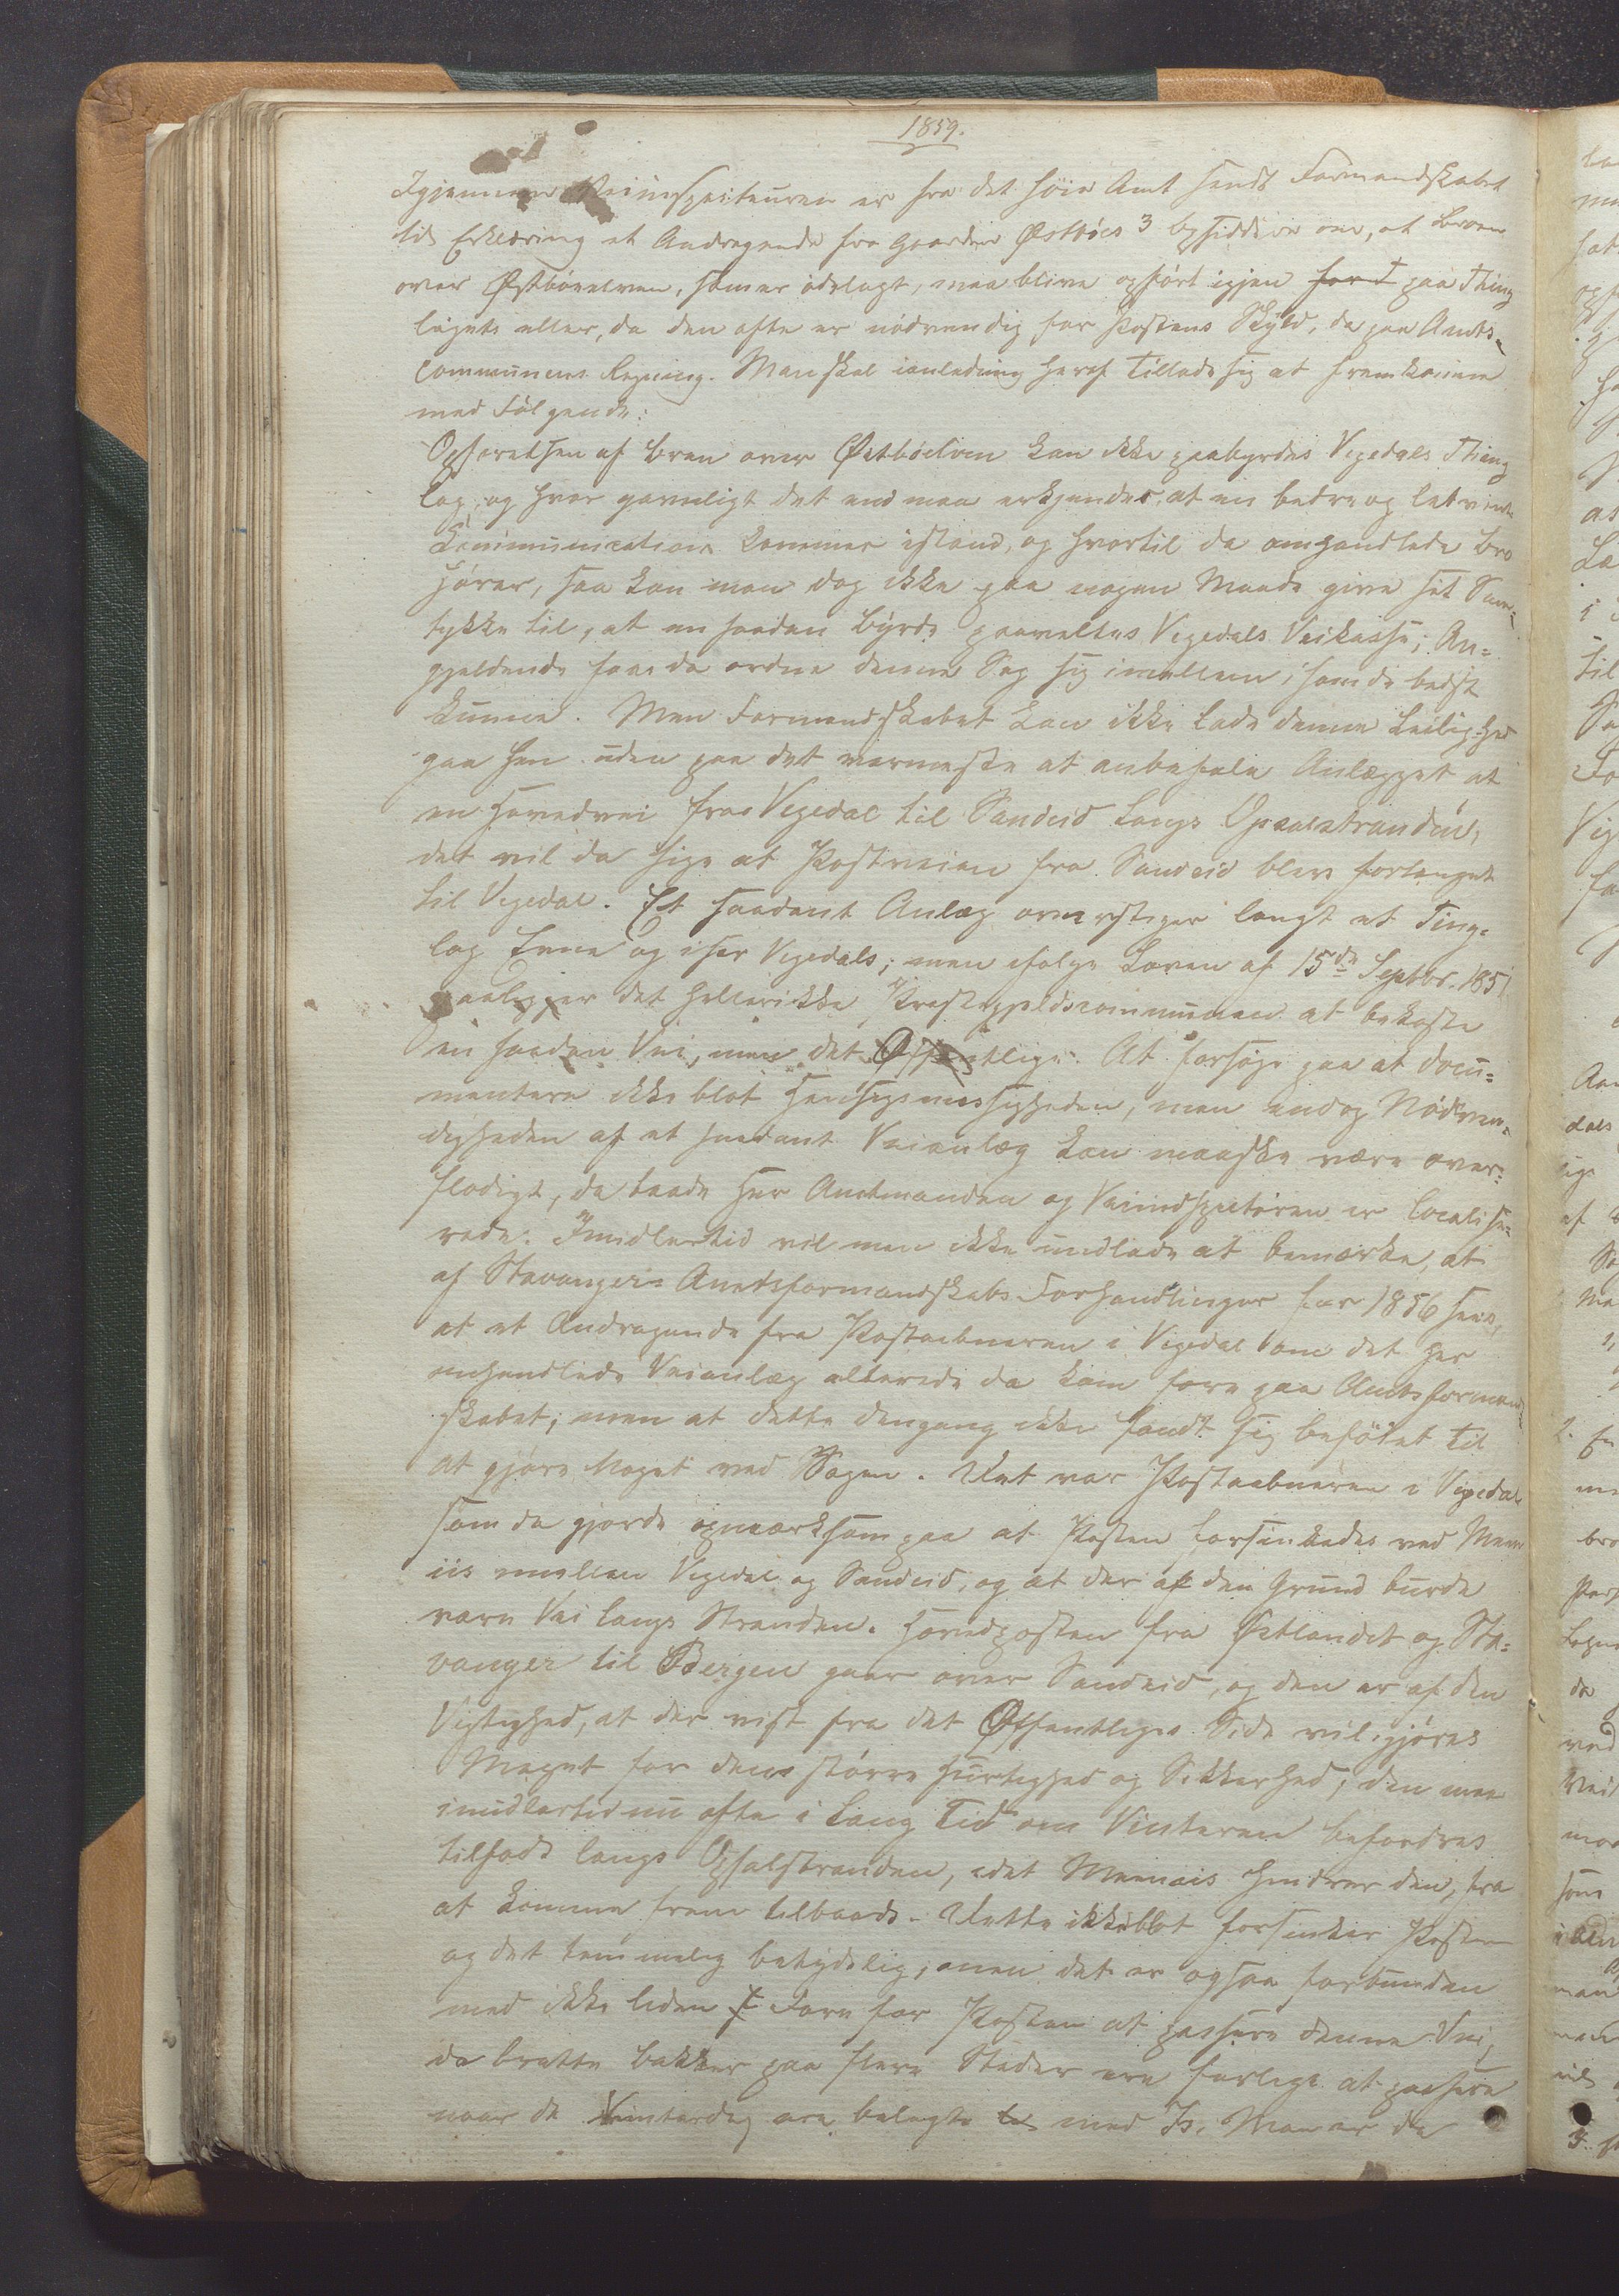 1859.
Igjennem Veiinspecteuren er fra det høie Amt sendt Formandskabet
til Erklæring et Andragende fra Gaarden Østbøes 3 Opsiddere om, at Broen
over Østbøelven, som er ødelagt, maa blive opført igjen for T paa Thing
lagets eller, da den ofte er nødvendig for Postens Skyld, da paa Amts-
communens Regning. Man skal i anledning heraf tillade sig at fremkomme
med Følgende:
Opførelsen af Broen over Østbøelven kan ikke paabyrdes Vigedals Thing
lag, og hvor gavnligt det end maa erkjendes at en bedre og letvint
Communication kommer istand, og hvortil da omhandlede Bro
hører, saa kan man dog ikke paa nogen Maade give sit Sam-
tykke til, at en saadan Byrde paaveltes Vigedals Veikasse; An-
gjeldende faar da ordne denne Sag sig imellem, som de bedst
kunne. Men Formandskabet kan ikke lade denne Leilighed
gaa hen uden paa det varmeste at anbefale Anlægget at
en Hovedvei fra Vigedal til Sandeid langs Opsalstranden,
det vil da sige at Postveien fra Sandeid blev forlænget
til Vigedal. Et saadant Anlæg overstiger langt et Ting-
lag Evne og især Vigedals; men ifølge Loven af 15de Septbr. 1851
paaligger det heller ikke Præstegjeldscommunen at bekoste
en saadan Vei, men det Offentlige. At forsøge paa at docu-
mentere ikke blot Hensigsmessigheden, men endog Nødven-
digheden af et saadant Veianlæg kan maaske være over-
flødigt, da baade Hr Amtmanden og Veiindspectøren er localise-
rede. Imidlertid vil man ikke undlade at bemærke, at
af Stavanger Amtsformandskabs Forhandlinger for 1856 sees,
at et Andragende fra Postaabneren i Vigedal om det her
omhandlede Veianlæg allerede da kom fore paa Amtsformand
skabet; men at dette dengang ikke fandt sig beføiet til
at gjøre Noget ved Sagen. Det var Postaabneren i Vigedal
som da gjorde opmærksom paa at Posten forsinkedes ved Meen
iis mellem Vigedal og Sandeid, og at der af den Grund burde
være Vei langs Stranden. Hovedposten fra Østlandet og Sta-
vanger til Bergen gaar over Sandeid, og den er af den
Vigtighed, at der vist fra det Offentliges Side vil gjøres
Meget for dens større Hurtighed og Sikkerhed; den maa
imidlertid nu ofte i lang Tid om Vinteren befordres
tilfods langs Opsalstranden, idet Meenais hindrer den, fra
at komme frem tilbaads. Dette ikke blot forsinker Posten
og det temmelig betydelig, men det er ogsaa forbunden
med ikke liden F Fare for Posten at passere denne Vei,
da bratte bakker paa flere Steder ere farlige at passere
naar de Vinterdag ere belagte te med Is. Man er da